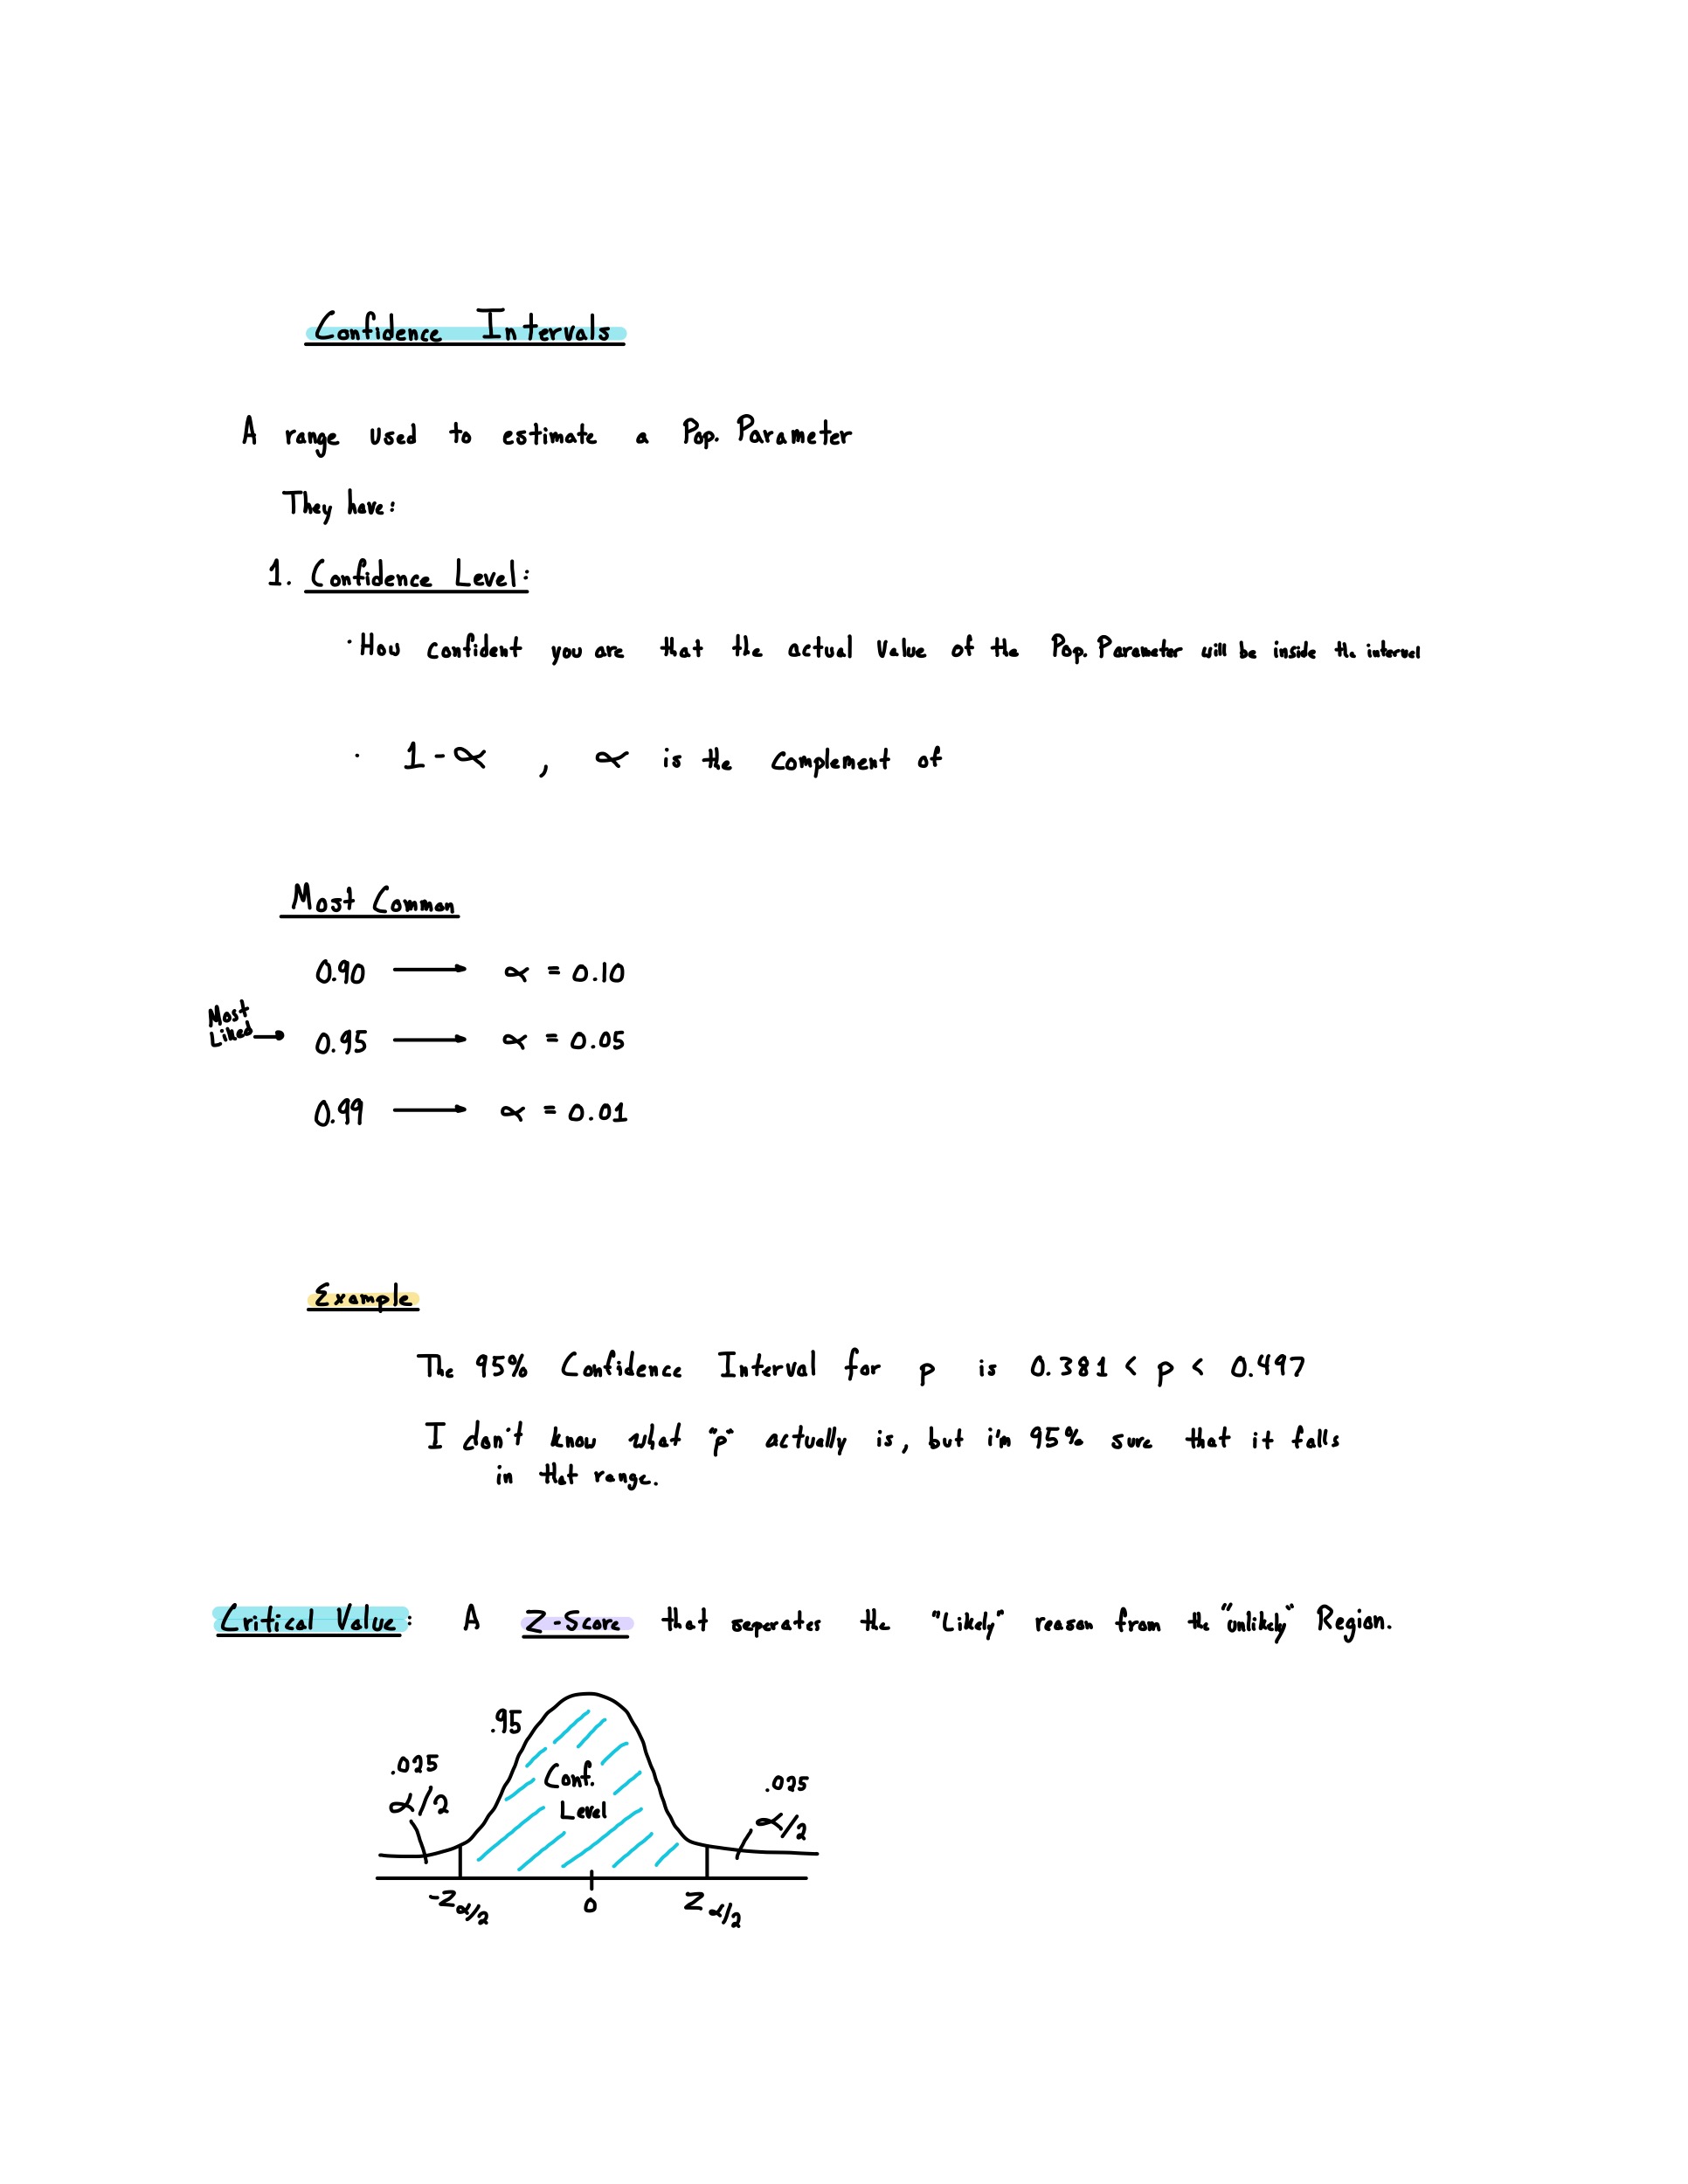 Confidence Intervals
A range used to estimate a Pop. Parameter
They have:
1. Confidence Level:
· How confident you are that the actual value of the Pop. Parameter will be inside the interval
· 1-α , α is the complement of
Most Common
0.90 → α = 0.10
Most
Liked → 0.95 → α = 0.05
0.99 → α = 0.01
Example
The 95% Confidence Interval for p is 0.381 < p < 0.497
I don't know what "p" actually is, but i'm 95% sure that it falls
in that range.
Critical Value: A Z-Score that seperates the "Likely" reason from the "unlikely" Region.
.95
.025
α/2
Conf.
Level
.025
α/2
-Z α/2
0
Z α/2